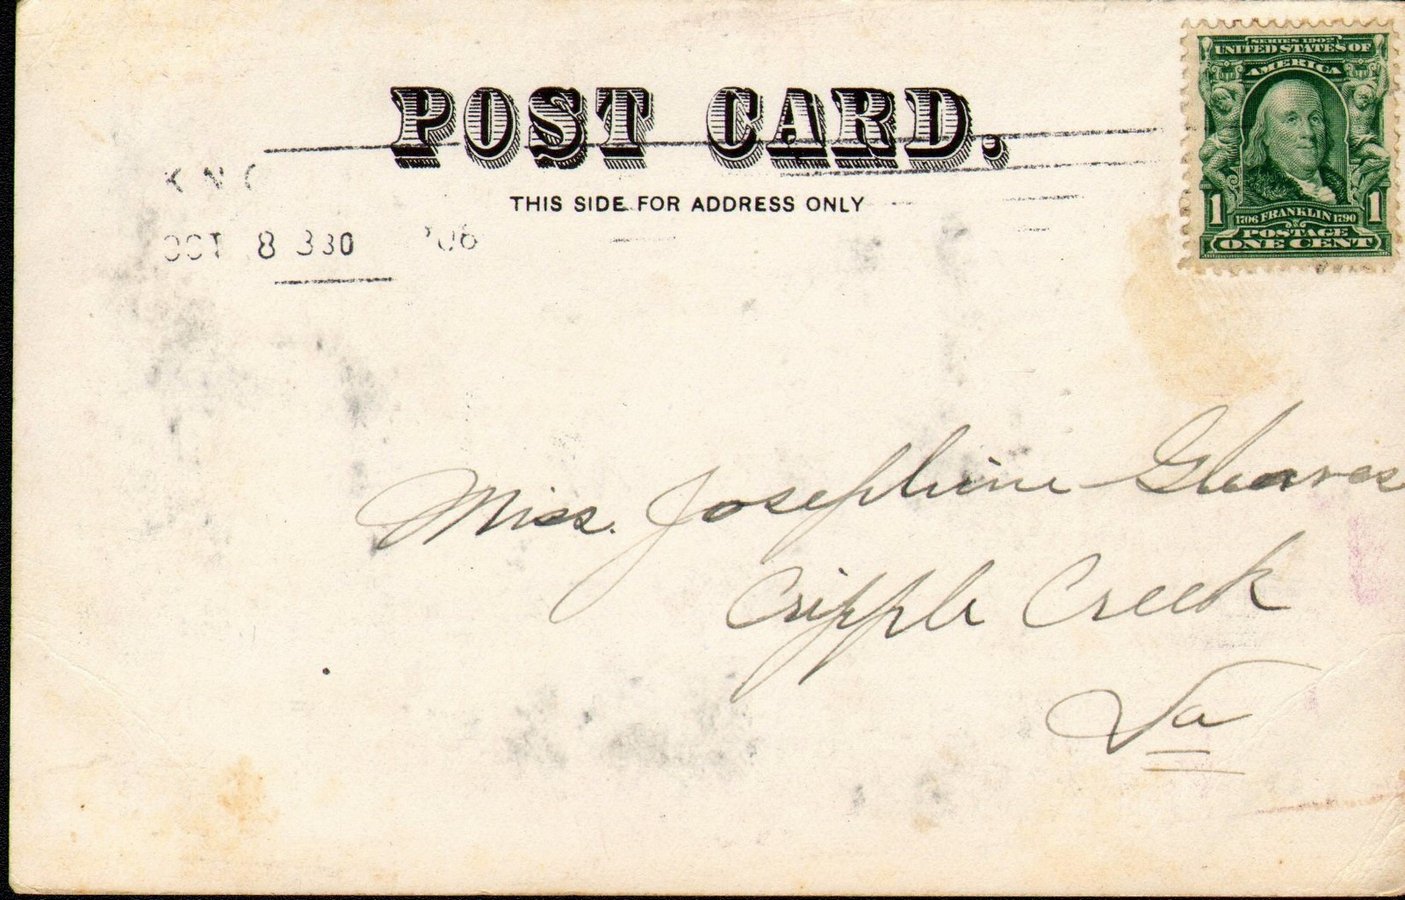 POST CARD.
THIS SIDE FOR ADDRESS ONLY
SERIES 1902
UNITED STATES OF
AMERICA
1 1706 FRANKLIN 1790 1
POSTAGE
ONE CENT
OCT 8 330 '06
Miss. Josephine Gleaves
Cripple Creek
Va